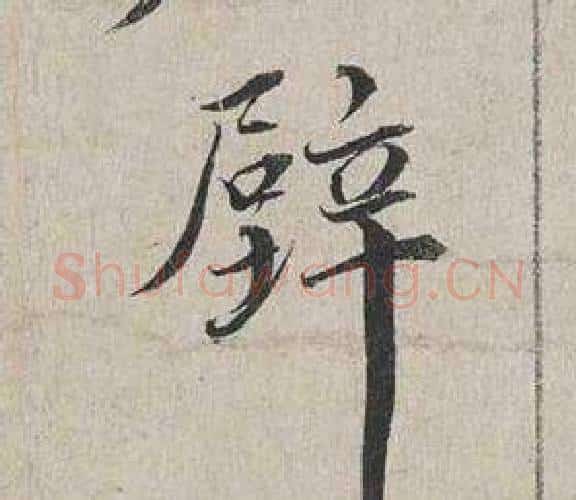 壁
Shufawang.CN